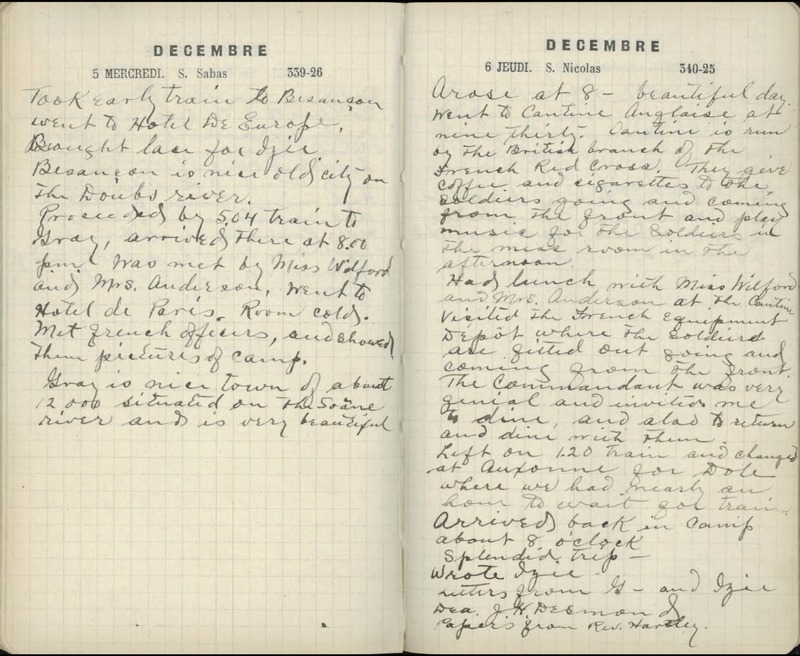 DECEMBRE
5 MERCREDI. S. Sabas 339-26
Took early train to Besançon
went to Hotel De Europe.
Bought lace for Izie
Besançon is nice old city on
The Doubs river.
Proceeded by 5.04 train to
Gray, arrived there at 8.00
p.m. Was met by Miss Wilford
and Mrs. Anderson, went to
Hotel de Paris. Room cold.
Met french officers, and showed
Them pictures of camp.
Gray is nice town of about
12 000 situated on the Soane
river and is very beautiful
DECEMBRE
6 JEUDI. S. Nicolas 340-25
Arose at 8 - beautiful day.
Went to Cantine Anglaise at
nine thirty. Cantine is run
by The British branch of the
French Red Cross. They give
coffee and cigarettes to the
soldiers going and coming
from the front and play
music for the soldiers in
the mess room in the
afternoon.
Had lunch with Miss Wilford
and Mrs. Anderson at the Cantine
Visited the French Equipment
Depot where the soldiers
are fitted out going and
coming from the front.
The Commandant was very
genial and invited me
to dine, and also to return
and dine with them.
Left on 1.20 train and changed
at Auxonne for Dole
where we had nearly an
hour to wait for train.
Arrived back in Camp
about 8 o'clock
Splendid trip -
Wrote Izie -
Letters from G - and Izie
Dea. J. H. Desmond
Papers from Rev. Hartley.